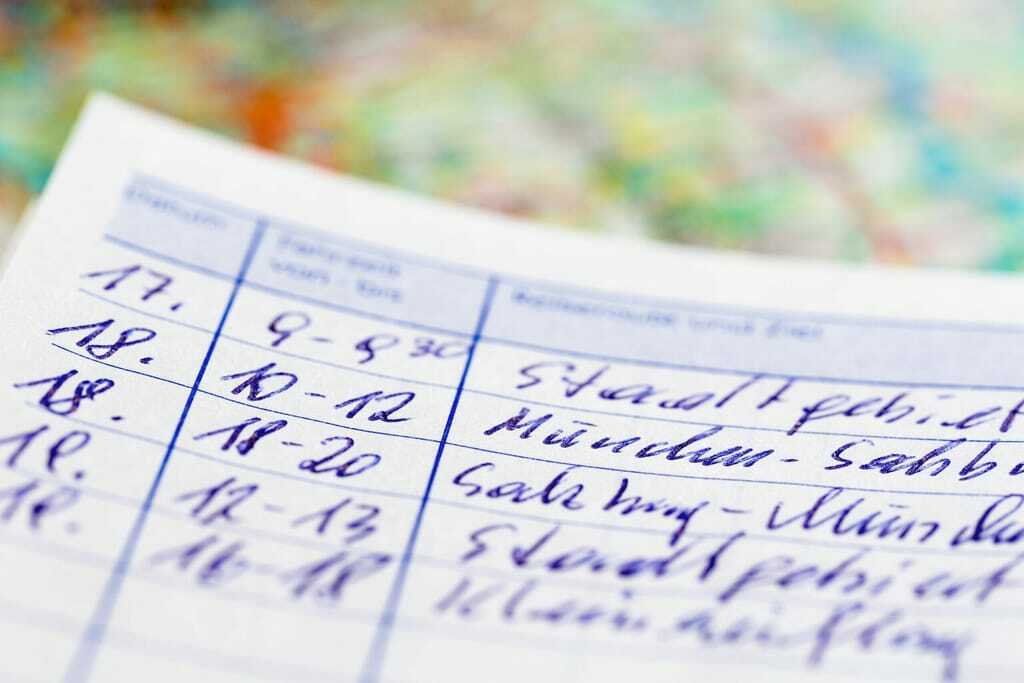 Datum Fahrzeit Reiseroute und Ziel
von - bis
17. 9 - 9 30 Stadtgebiet
18. 10 - 12 München - Salzb
18. 18 - 20 Salzburg - Münch
19. 12 - 13 Stadtgebiet
19. 16 - 18